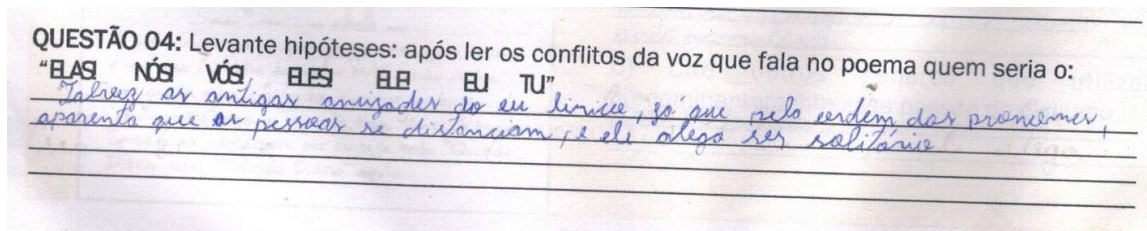 QUESTÃO 04: Levante hipóteses: após ler os conflitos da voz que fala no poema quem seria o:
“ELAS! NÓS! VÓS!, ELES! ELE! EU TU”
Talvez as antigas amizades do eu lírico, só que pela ordem dos pronomes,
aparenta que as pessoas se distanciam, e ele alega ser solitário